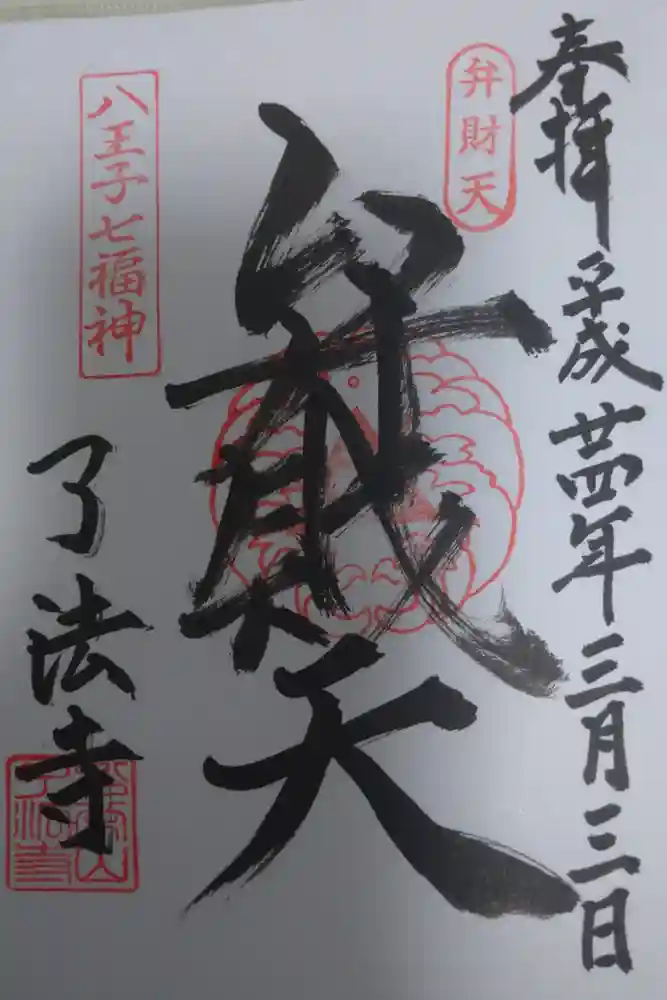 奉拝
平成廿四年三月三日
弁財天
弁財天
八王子七福神
了法寺